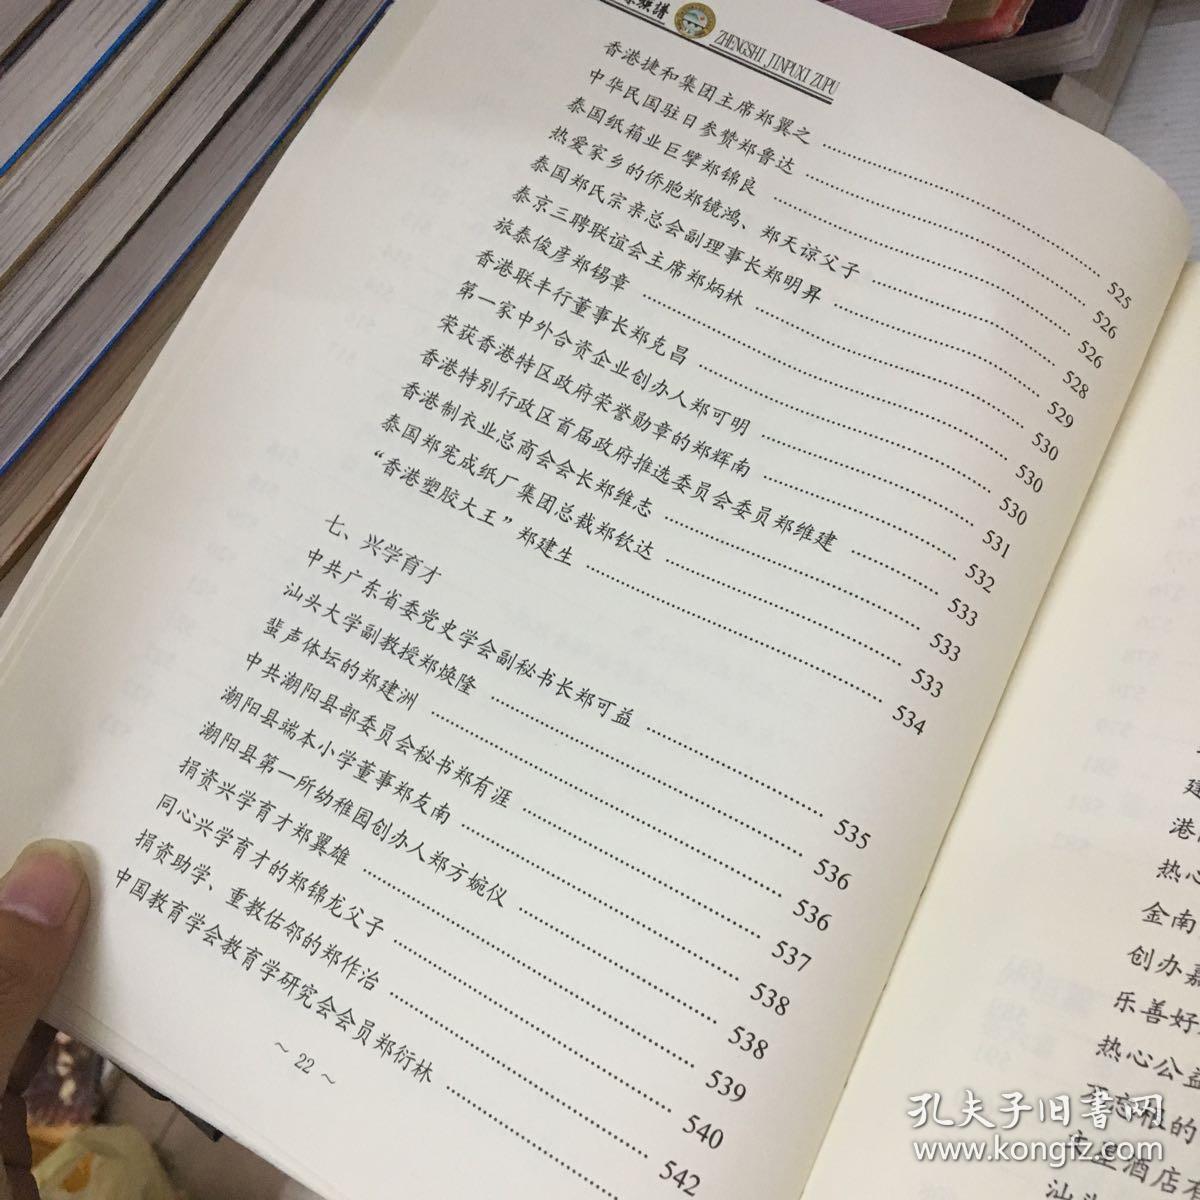 族谱
ZHENGSHI JINPUXI ZUPU
香港捷和集团主席郑翼之 …… 525
中华民国驻日参赞郑鲁达 …… 526
泰国纸箱业巨擘郑锦良 …… 526
热爱家乡的侨胞郑镜鸿、郑天谅父子 …… 528
泰国郑氏宗亲总会副理事长郑明昇 …… 529
泰京三聘联谊会主席郑炳林 …… 530
旅泰俊彦郑锡章 …… 530
香港联丰行董事长郑克昌 …… 530
第一家中外合资企业创办人郑可明 …… 531
荣获香港特区政府荣誉勋章的郑辉南 …… 532
香港特别行政区首届政府推选委员会委员郑维建 …… 533
香港制衣业总商会会长郑维志 …… 533
泰国郑宪成纸厂集团总裁郑钦达 …… 533
“香港塑胶大王”郑建生 …… 534
七、兴学育才
中共广东省委党史学会副秘书长郑可益 …… 535
汕头大学副教授郑焕隆 …… 536
蜚声体坛的郑建洲 …… 536
中共潮阳县部委员会秘书郑有涯 …… 537
潮阳县端本小学董事郑友南 …… 538
潮阳县第一所幼稚园创办人郑方婉仪 …… 538
捐资兴学育才郑翼雄 …… 539
同心兴学育才的郑锦龙父子 …… 540
捐资助学、重教佑邻的郑作治 …… 542
中国教育学会教育学研究会会员郑衍林 ……
~ 22 ~
建
港
热心
金南
创办嘉
乐善好
热心公益
不忘根的
酒店
汕头
孔夫子旧书网
www.kongfz.com